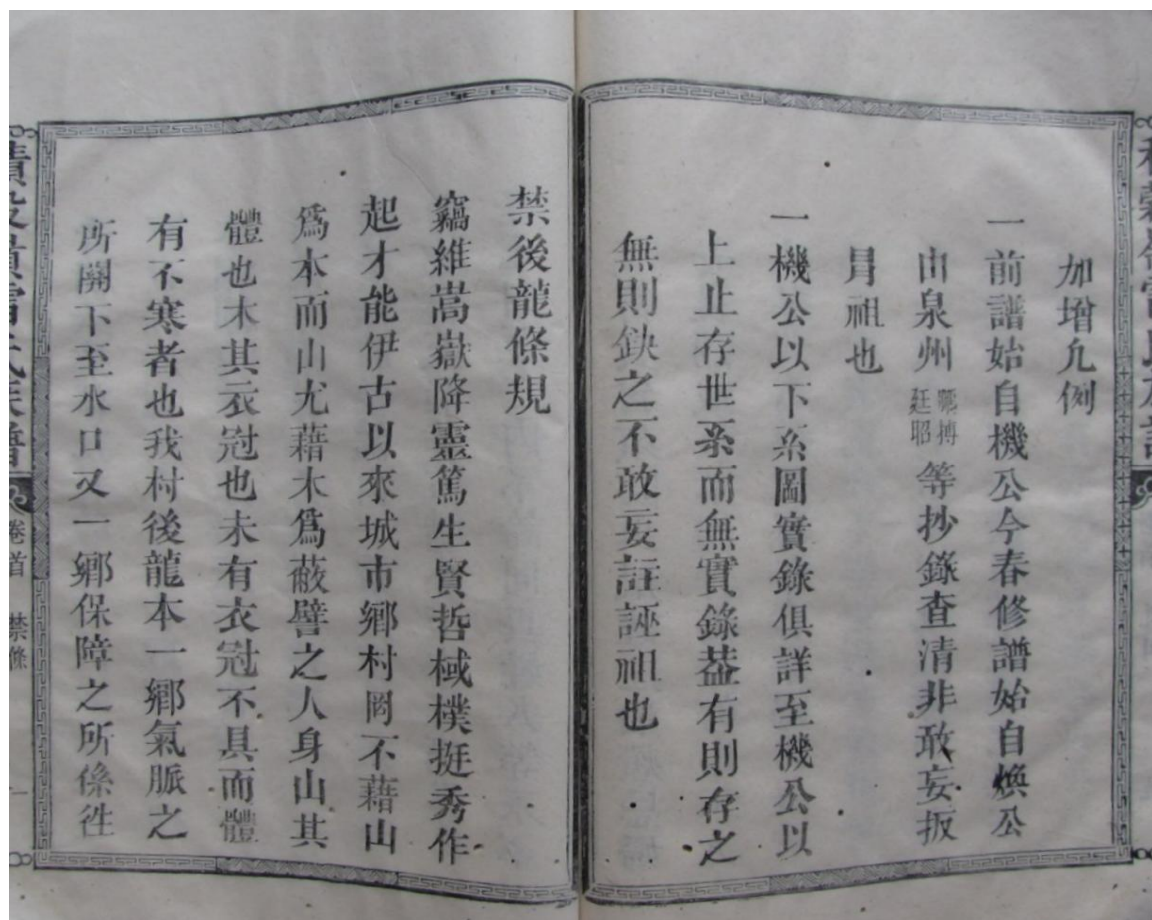 加增凢例
一前譜始自機公今春修譜始自煥公
由泉州鵬搏廷昭等抄錄查清非敢妄扳
冐祖也
一機公以下系圖實錄俱詳至機公以
上止存世系而無實錄葢有則存之
無則缺之不敢妄註誣祖也
禁後龍條規
竊維嵩嶽降靈篤生賢哲棫樸挺秀作
起才能伊古以來城市鄉村罔不藉山
爲本而山尤藉木爲蔽譬之人身山其
體也木其衣冠也未有衣冠不具而體
有不寒者也我村後龍本一鄉氣脈之
所關下至水口又一鄉保障之所係徃
氏族譜
卷首
禁條
一